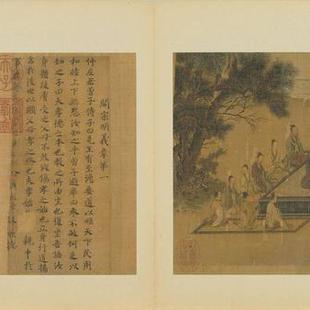 開宗明義章第一
仲尼居曾子侍子曰先王有至德要道以順天下民用
和睦上下無怨汝知之乎曾子避席曰參不敏何足以
知之子曰夫孝德之本也教之所由生也復坐吾語汝
身體髮膚受之父母不敢毀傷孝之始也立身行道揚
名於後世以顯父母孝之終也夫孝始
親中於